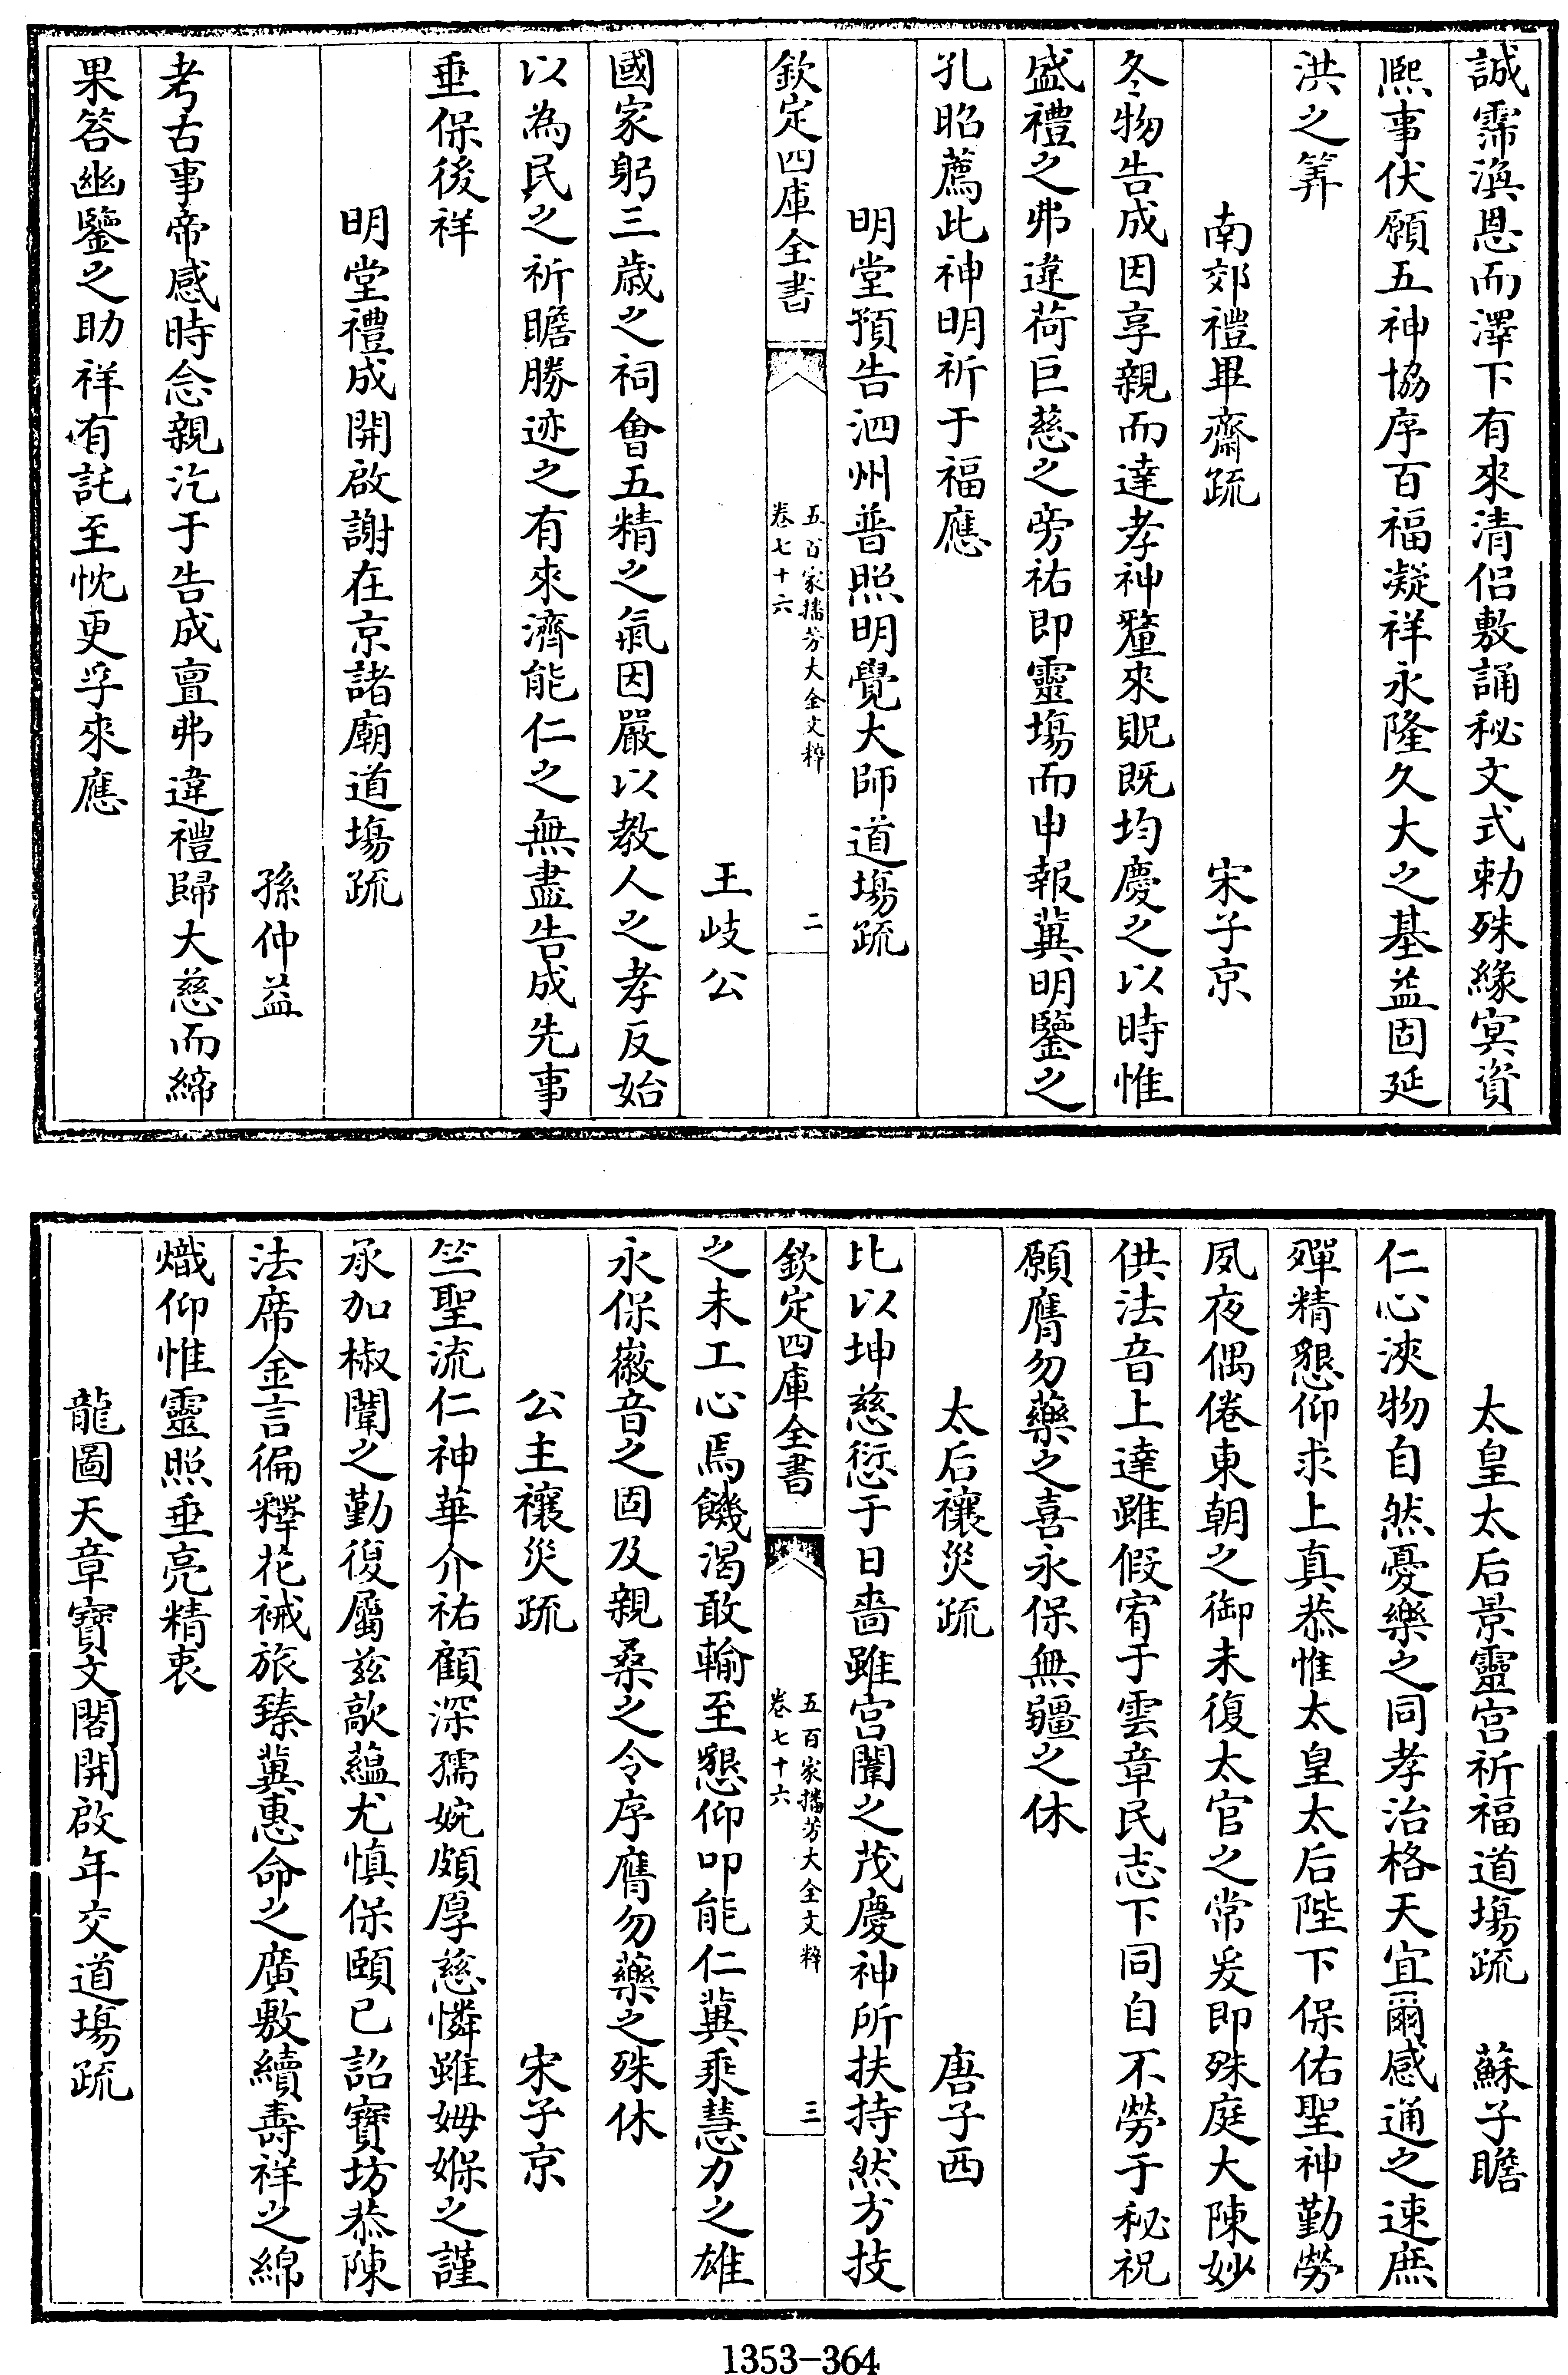 誠霈渙恩而澤下有來清侣敷誦秘文式勅殊緣㝠資
熈事伏願五神協序百福凝祥永隆久大之基益固延
洪之筭
南郊禮畢齋疏 宋子京
冬物告成因享親而達孝神釐來貺既均慶之以時惟
盛禮之弗違荷巨慈之旁祐即靈塲而申報冀明鑒之
孔昭薦此神明祈于福應
明堂預告泗州普照明覺大師道塲疏
欽定四庫全書
五百家播芳大全文粹
卷七十六
二
王岐公
國家躬三歲之祠會五精之氣因嚴以教人之孝反始
以為民之祈瞻勝迹之有來濟能仁之無盡告成先事
垂保後祥
明堂禮成開啟謝在京諸廟道塲疏
孫仲益
考古事帝感時念親汔于告成亶弗違禮歸大慈而締
果答幽鑒之助祥有託至忱更孚來應
太皇太后景靈宫祈福道塲疏 蘇子瞻
仁心浹物自然憂樂之同孝治格天宜爾感通之速庶
殫精懇仰求上真恭惟太皇太后陛下保佑聖神勤勞
夙夜偶倦東朝之御未復太官之常爰即殊庭大陳妙
供法音上達雖假宥于雲章民志下同自不勞于秘祝
願膺勿藥之喜永保無疆之休
太后禳災疏 唐子西
比以坤慈愆于日嗇雖宫闈之茂慶神所扶持然方技
欽定四庫全書
五百家播芳大全文粹
卷七十六
三
之未工心焉饑渴敢輸至懇仰叩能仁冀乘慧力之雄
永保徽音之固及親桑之令序膺勿藥之殊休
公主禳災疏 宋子京
竺聖流仁神華介祐顧深孺婉頗厚慈憐雖姆媬之謹
承加椒闈之勤復屬兹歊藴尤慎保頤已詔寶坊恭陳
法席金言徧釋花祴旅臻冀惠命之廣敷續壽祥之綿
熾仰惟靈照垂亮精衷
龍圖天章寶文閣開啟年交道塲疏
1353-364